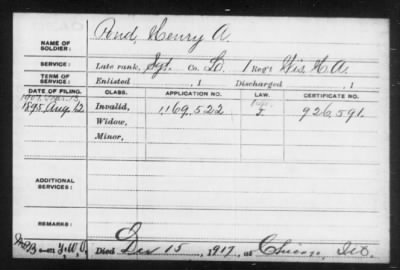 NAME OF SOLDIER: Pond, Henry A.
SERVICE: Late rank, Sgt. Co. L, 1 Reg't Wis. H.A.
TERM OF SERVICE: Enlisted , 1 Discharged , 1
DATE OF FILING. CLASS. APPLICATION NO. LAW. CERTIFICATE NO.
1895 Aug. 12 Invalid, 1,169,522 926,591.
Widow,
Minor,
ADDITIONAL SERVICES:
REMARKS:
Died Dec 15, 1917, at Chicago, Ill.